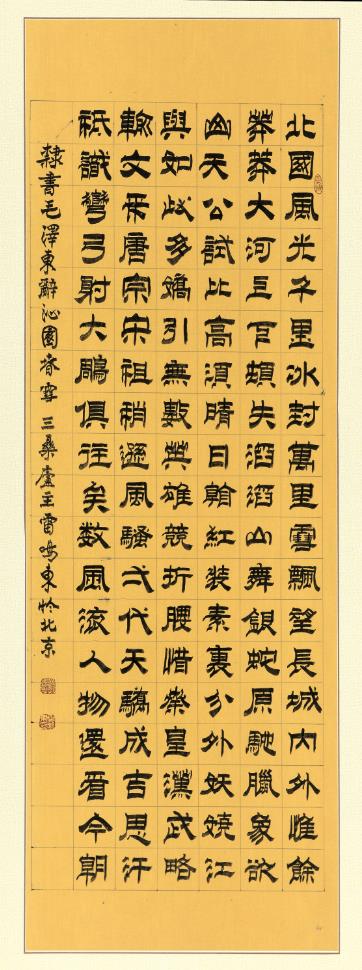 北國風光千里冰封萬里雪飄望長城内外惟餘
莽莽大河上下頓失滔滔山舞銀蛇原馳臘象欲
山天公試比高須晴日看紅裝素裹分外妖嬈江
與如此多嬌引無數英雄競折腰惜秦皇漢武略
輸文采唐宗宋祖稍遜風騷弌代天驕成吉思汗
衹識彎弓射大鵰俱往矣數風流人物還看今朝
隸書毛澤東辭沁園春雪 三桑廬主雷鳴東於北京